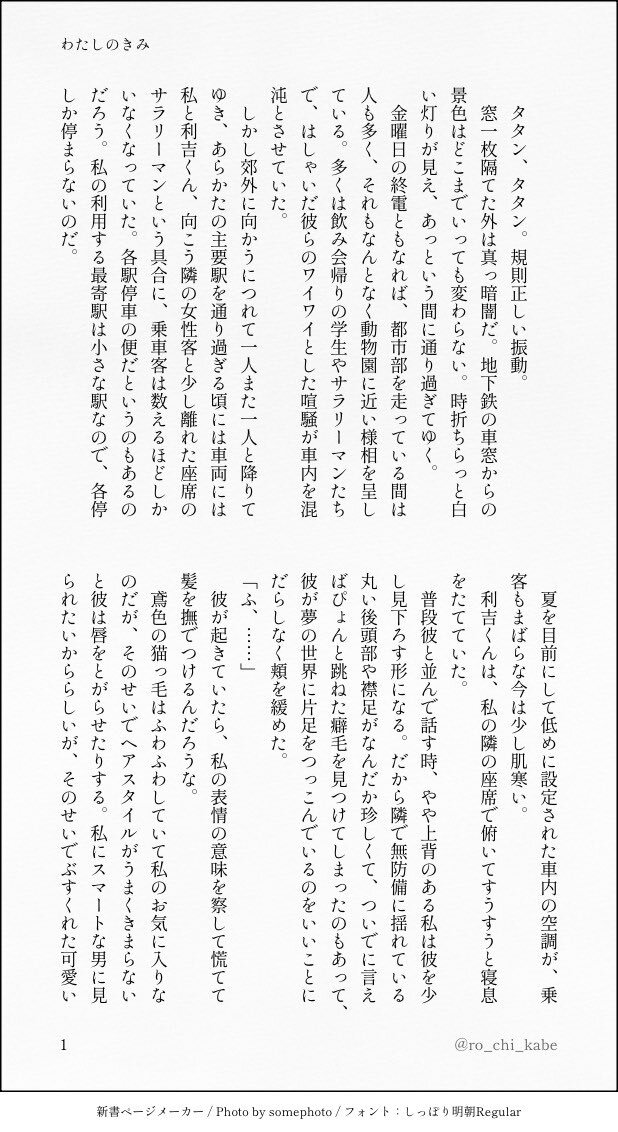 わたしのきみ
タタン、タタン。規則正しい振動。
窓一枚隔てた外は真っ暗闇だ。地下鉄の車窓からの
景色はどこまでいっても変わらない。時折ちらっと白
い灯りが見え、あっという間に通り過ぎてゆく。
金曜日の終電ともなれば、都市部を走っている間は
人も多く、それもなんとなく動物園に近い様相を呈し
ている。多くは飲み会帰りの学生やサラリーマンたち
で、はしゃいだ彼らのワイワイとした喧騒が車内を混
沌とさせていた。
しかし郊外に向かうにつれて一人また一人と降りて
ゆき、あらかたの主要駅を通り過ぎる頃には車両には
私と利吉くん、向こう隣の女性客と少し離れた座席の
サラリーマンという具合に、乗車客は数えるほどしか
いなくなっていた。各駅停車の便だというのもあるの
だろう。私の利用する最寄駅は小さな駅なので、各停
しか停まらないのだ。
夏を目前にして低めに設定された車内の空調が、乗
客もまばらな今は少し肌寒い。
利吉くんは、私の隣の座席で俯いてすうすうと寝息
をたてていた。
普段彼と並んで話す時、やや上背のある私は彼を少
し見下ろす形になる。だから隣で無防備に揺れている
丸い後頭部や襟足がなんだか珍しくて、ついでに言え
ばぴょんと跳ねた癖毛を見つけてしまったのもあって、
彼が夢の世界に片足をつっこんでいるのをいいことに
だらしなく頬を緩めた。
「ふ、……」
彼が起きていたら、私の表情の意味を察して慌てて
髪を撫でつけるんだろうな。
鳶色の猫っ毛はふわふわしていて私のお気に入りな
のだが、そのせいでヘアスタイルがうまくきまらない
と彼は唇をとがらせたりする。私にスマートな男に見
られたいかららしいが、そのせいでぶすくれた可愛い
1
@ro_chi_kabe
新書ページメーカー / Photo by somephoto / フォント：しっぽり明朝Regular